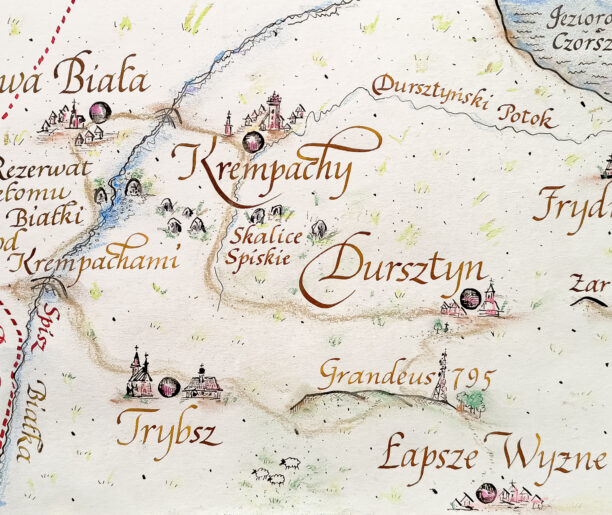 Jezioro
Czorsz
wa Biała
Dursztyński Potok
Krempachy
Rezerwat
ełomu
Białki
od
Krempachami
Skalice
Spiskie
Fryd
Dursztyn
Żar
Spisz
Białka
Grandeus 795
Trybsz
Łapsze Wyżne